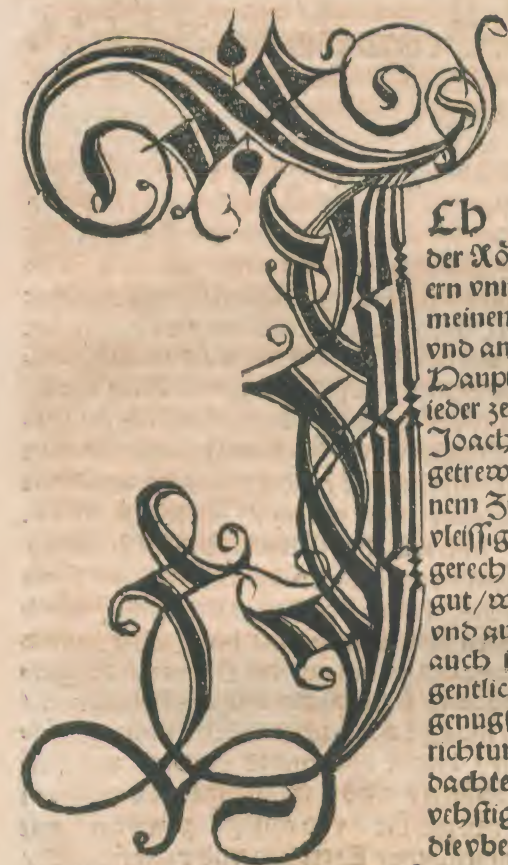 JCh
der Rö
ern vnn
meinen
vnd an
Haupt
ieder ze
Joach
getrew
nem Z
vleissig
gerech
gut/w
vnd zu
auch i
gentlic
genugs
richtun
dachte
vehstig
die vbe